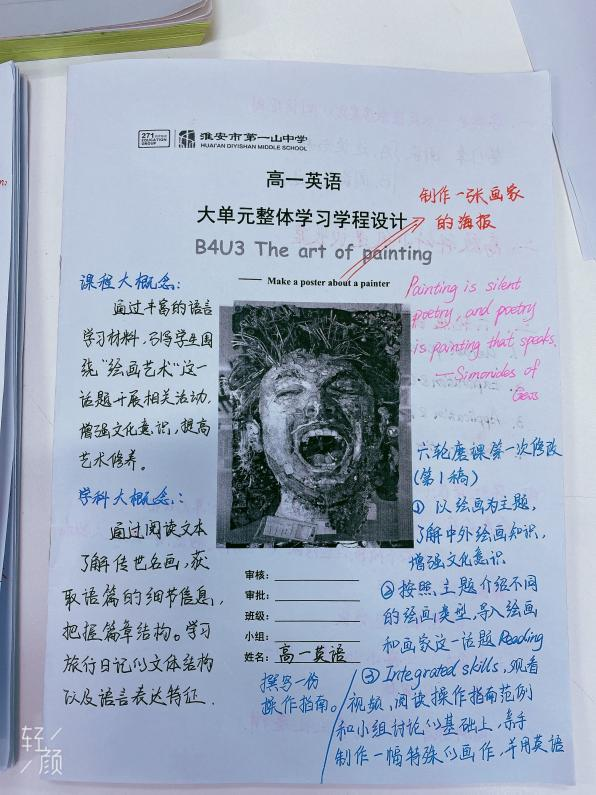 271 EDUCATION GROUP
淮安市第一山中学
HUAI'AN DIYISHAN MIDDLE SCHOOL
高一英语
大单元整体学习学程设计
B4U3 The art of painting
—— Make a poster about a painter
制作一张画家
的海报
Painting is silent
poetry, and poetry
is painting that speaks.
—Simonides of
Ceos
课程大概念:
通过丰富的语言
学习材料,引得学生围
绕"绘画艺术"这一
话题开展相关活动,
增强文化意识,提高
艺术修养。
学科大概念:
通过阅读文本
了解传世名画,获
取语篇的细节信息,
把握篇章结构。学习
旅行日记的文体结构
以及语言表达特征.
六轮磨课第一次修改
(第1稿)
① 以绘画为主题,
了解中外绘画知识,
增强文化意识
② 按照主题介绍不同
的绘画类型,导入绘画
和画家这一话题Reading
③ Integrated skills,观看
视频,阅读操作指南范例
和小组讨论的基础上,亲手
制作一幅特殊的画作,并用英语
撰写一份
操作指南。
审核:
审批:
班级:
小组:
姓名: 高一英语
轻颜